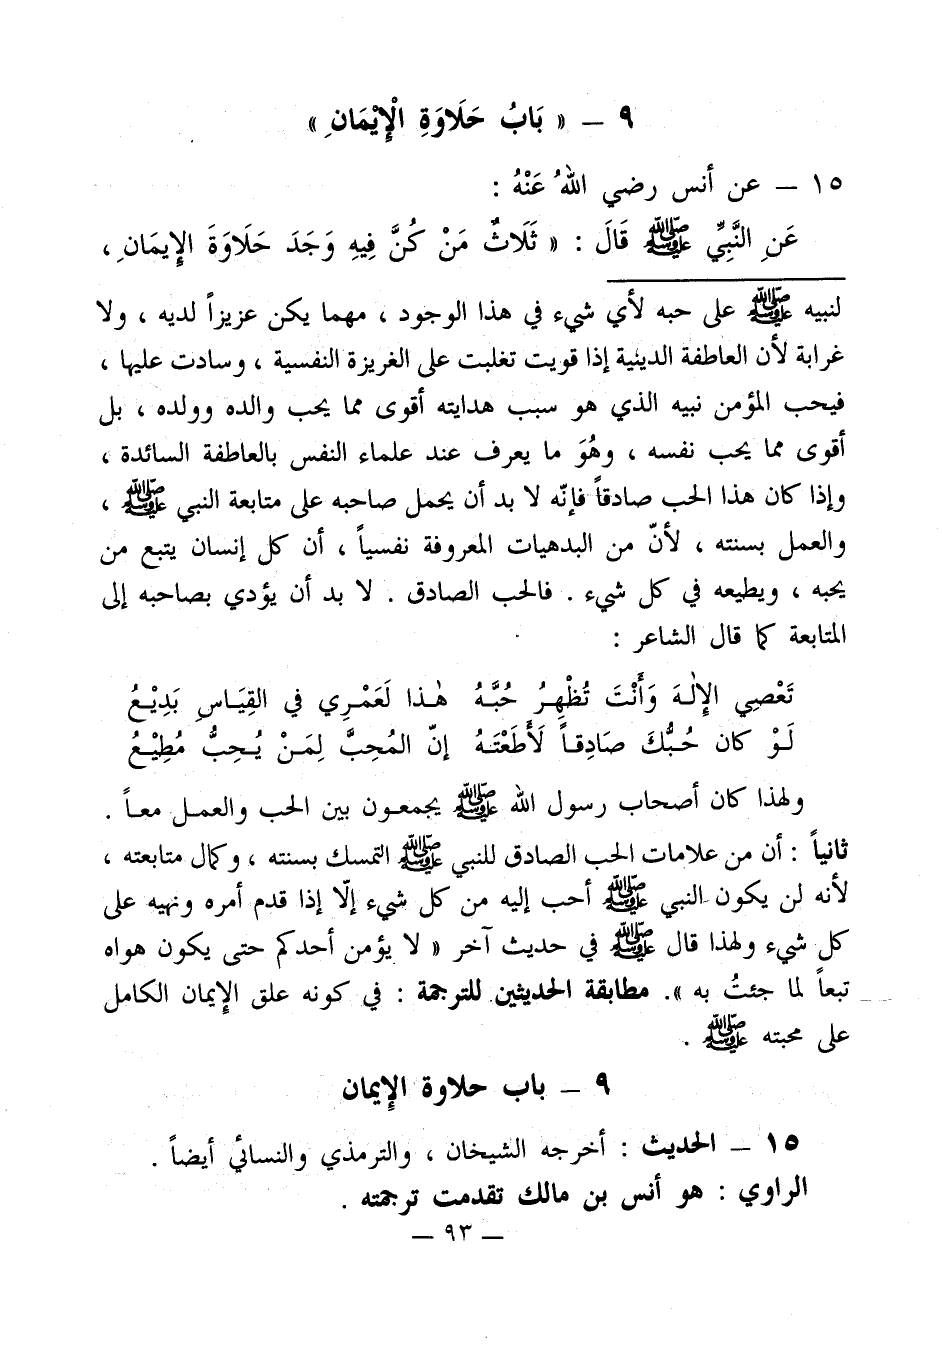 ٩ ــ « بَابُ حَلَاوَةِ الْإِيْمَانِ »
١٥ ــ عن أنس رضي اللهُ عَنْهُ :
عَنِ النَّبِّي ﷺ قَالَ : « ثَلَاثٌ مَنْ كُنَّ فِيهِ وَجَدَ حَلَاوَةَ الإِيمَانِ ،
لنبيه ﷺ على حبه لأي شيء في هذا الوجود ، مهما يكن عزيزاً لديه ، ولا
غرابة لأن العاطفة الدينية إذا قويت تغلبت على الغريزة النفسية ، وسادت عليها ،
فيحب المؤمن نبيه الذي هو سبب هدايته أقوى مما يحب والده وولده ، بل
أقوى مما يحب نفسه ، وهُوَ ما يعرف عند علماء النفس بالعاطفة السائدة ،
وإذا كان هذا الحب صادقاً فإنّه لا بد أن يحمل صاحبه على متابعة النبي ﷺ ،
والعمل بسنته ، لأنّ من البدهيات المعروفة نفسياً ، أن كل إنسان يتبع من
يحبه ، ويطيعه في كل شيء . فالحب الصادق . لا بد أن يؤدي بصاحبه إلى
المتابعة كما قال الشاعر :
تَعْصِي الإِلٰهَ وَأَنْتَ تُظْهِرُ حُبَّهُ هٰذا لَعَمْرِي في القِيَاسِ بَدِيْعُ
لَوْ كان حُبُّكَ صَادِقاً لَأَطَعْتَهُ إنّ المُحِبَّ لِمَنْ يُحِبُّ مُطِيْعُ
ولهذا كان أصحاب رسول الله ﷺ يجمعون بين الحب والعمل معاً .
ثانياً : أن من علامات الحب الصادق للنبي ﷺ التمسك بسنته ، وكمال متابعته ،
لأنه لن يكون النبي ﷺ أحب إليه من كل شيء إلّا إذا قدم أمره ونهيه على
كل شيء ولهذا قال ﷺ في حديث آخر « لا يؤمن أحدكم حتى يكون هواه
تبعاً لما جئتُ به ». مطابقة الحديثين للترجمة : في كونه علق الإيمان الكامل
على محبته ﷺ .
٩ ــ باب حلاوة الإيمان
١٥ ــ الحديث : أخرجه الشيخان ، والترمذي والنسائي أيضاً .
الراوي : هو أنس بن مالك تقدمت ترجمته .
ــ ٩٣ ــ